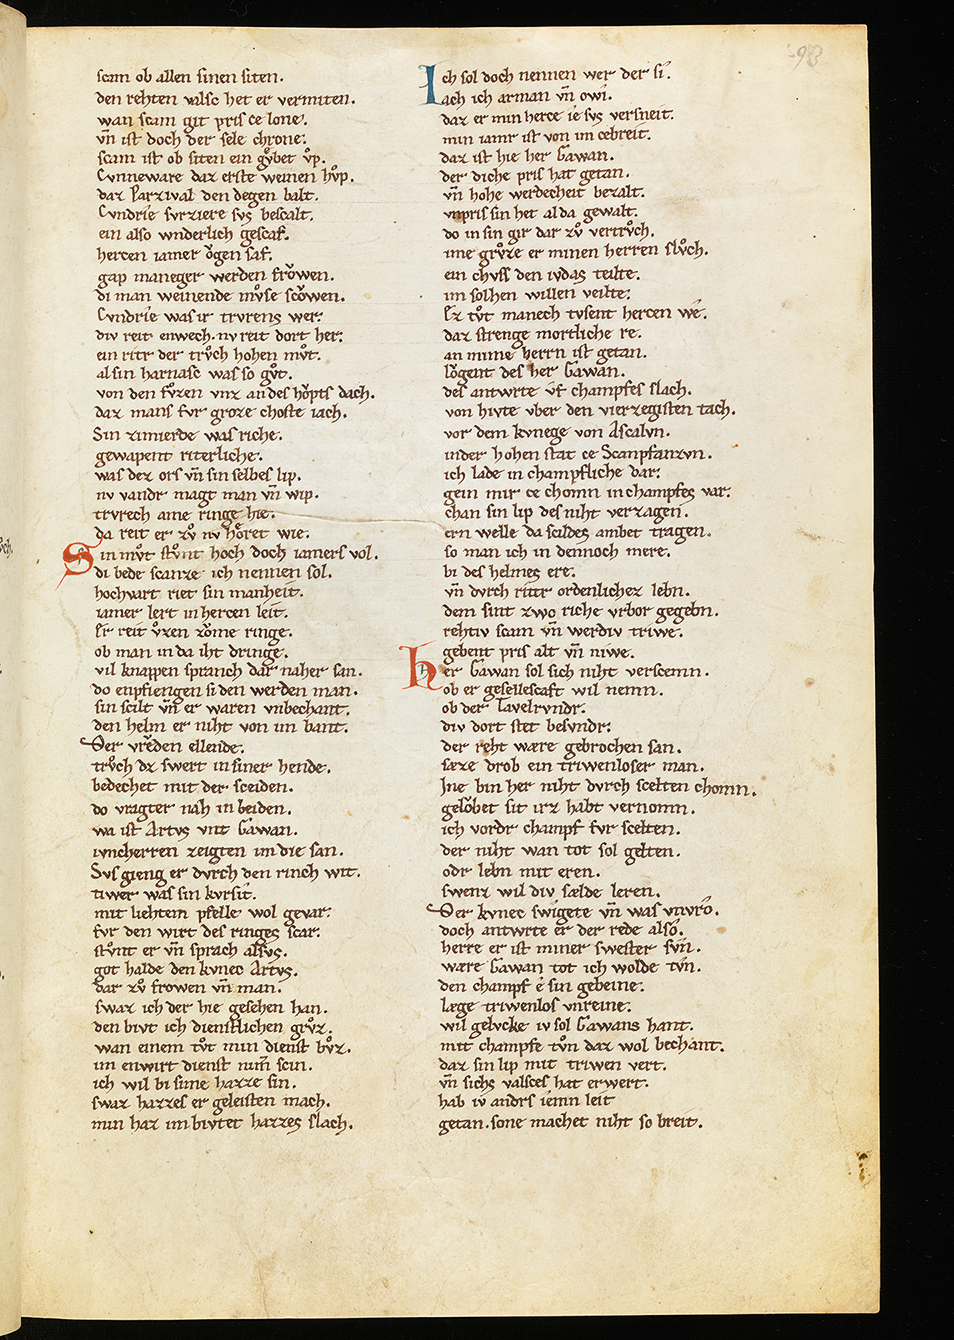 scam ob allen sinen siten.
den rehten valsc het er vermiten.
wan scam git pris ce lone.
vn̄ ist doch der sele chrone.
scam ist ob siten ein gv̊bet v̊p.
Cvnneware daz erste weinen hv̊p.
daz Parzival den degen balt.
Cvndrîe svrziere svs bescalt.
ein also wnderlich gescaf.
hercen iamer ǒgen saf.
gap maneger werden frǒwen.
di man weinende mv̊se scǒwen.
Cvndrîe was ir trvrens wer.
div reit enwech. nv reit dort her.
ein ritr der trv̊ch hohen mv̊t.
al sin harnasc was so gv̊t.
von den fv̊zen vnz an des hǒpts dach.
daz mans fvr groze choste iach.
Sin zimierde was riche.
gewapent riterliche.
was dez ors vn̄ sin selbes lip.
nv vandr magt man vn̄ wip.
trvrech ame ringe hie.
da reit er zv̊ nv hǒret wie.
Sin mv̊t stv̊nt hoch doch iamers vol.
di bede scanze ich nennen sol.
hochvart riet sin manheit.
iamer lert in hercen leit.
Er reit v̊zen zǒme ringe.
ob man in da iht dringe.
vil knappen spranch dar naher san.
do enpfiengen si den werden man.
sin scilt vn̄ er waren vnbechant.
den helm er niht von im bant.
Der vrêden ellende.
trv̊ch dz swert in siner hende.
bedechet mit der sceiden.
do vragter nâh in beiden.
wa ist Artvs vnt Gawan.
ivncherren zeigten im die san.
Svs gieng er dvrch den rinch wit.
tiwer was sin kvrsit.
mit liehtem pfelle wol gevar.
fvr den wirt des ringes scar.
stv̊nt er vn̄ sprach alsvs.
got halde den kvnec Artvs.
dar zv̊ frowen vn̄ man.
swaz ich der hie gesehen han.
den bivt ich dienstlichen grv̊z.
wan einem tv̊t min dienst bv̊z.
im enwirt dienst nim̄ scin.
ich wil bi sime hazze sin.
swaz hazzes er geleisten mach.
min haz im bivtet hazzes slach.
Ich sol doch nennen wer der si.
ach ich arman vn̄ owi.
daz er min herce ie svs versneit.
min iamr ist von im cebreit.
daz ist hie her Gawan.
der diche pris hat getan.
vn̄ hohe werdecheit bezalt.
vnpris sin het al da gewalt.
do in sin gir dar zv̊ vertrv̊ch.
ime grv̊ze er minen herren slv̊ch.
ein chvss den ivdas teilte.
im solhen willen veilte.
Ez tv̊t manech tvsent hercen we.
daz strenge mortliche re.
an mime herrn ist getan.
lǒgent des her Gawan.
des antwrte v̂f champfes slach.
von hivte vber den vierzegisten tach.
vor dem kvnege von Ascalvn.
inder hohen stat ce Scanpfanzvn.
ich lade in champfliche dar.
gein mir ce chomn in champfes var.
chan sin lip des niht verzagen.
ern welle da scildes ambet tragen.
so man ich in dennoch mere.
bi des helmes ere.
vn̄ dvrch rittr ordenlichez lebn.
dem sint zwo riche vrbor gegebn.
rehtiv scam vn̄ werdiv triwe.
gebent pris alt vn̄ niwe.
her Gawan sol sich niht verscemn.
ob er gesellescaft wil nemn.
ob der Tavelrvndr.
div dort stet besvndr.
der reht wære gebrochen san.
sæze drob ein triwenloser man.
Jne bin her niht dvrch scelten chomn.
gelǒbet sit irz habt vernomn.
ich vordr champf fvr scelten.
der niht wan tot sol gelten.
odr lebn mit eren.
swenz wil div sælde leren.
Der kvnec swigete vn̄ was vnvrô.
doch antwrte er der rede alsô.
herre er ist miner swester svn̄.
wære Gawan tot ich wolde tvn̄.
den champf ê sin gebeine.
læge triwenlos vnreine.
wil gelvcke iv sol Gawans hant.
mit champfe tv̊n daz wol bechant.
daz sin lip mit triwen vert.
vn̄ sichs valsces hat erwert.
hab iv andrs iemn leit
getan. sone machet niht so breit.